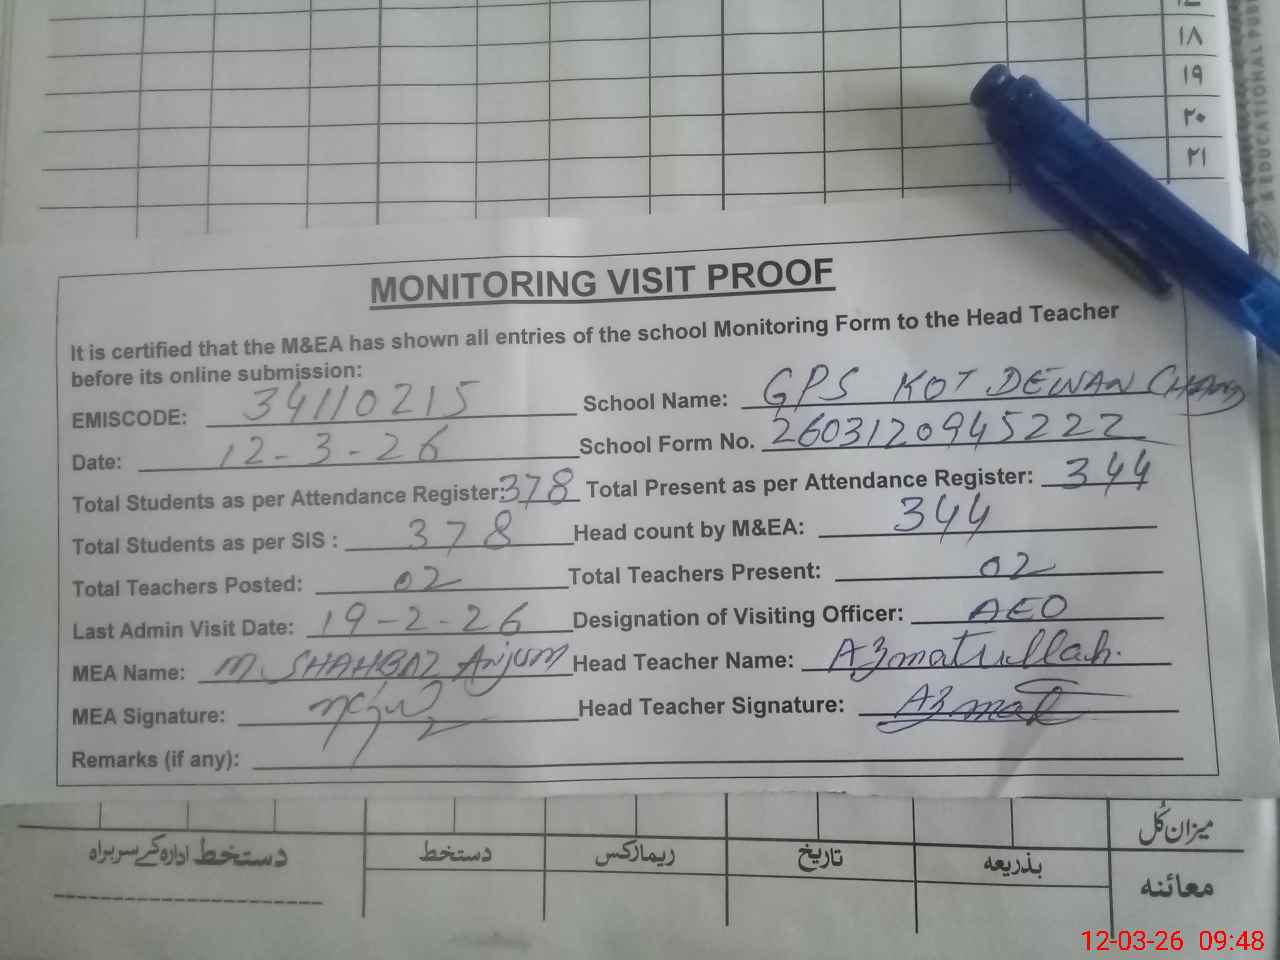 ١٨
١٩
٢٠
٢١
& EDUCATIONAL PUB
MONITORING VISIT PROOF
It is certified that the M&EA has shown all entries of the school Monitoring Form to the Head Teacher
before its online submission:
EMISCODE: 34110215 School Name: GPS KOT DEWAN CHAND
Date: 12-3-26 School Form No. 260312094522 2
Total Students as per Attendance Register: 378 Total Present as per Attendance Register: 344
Total Students as per SIS : 378 Head count by M&EA: 344
Total Teachers Posted: 02 Total Teachers Present: 02
Last Admin Visit Date: 19-2-26 Designation of Visiting Officer: AEO
MEA Name: M. SHAHBAZ Anjum Head Teacher Name: Azmatullah.
MEA Signature: Head Teacher Signature: Azmat
Remarks (if any):
میزان کُل
معائنہ بذریعہ تاریخ ریمارکس دستخط دستخط ادارہ کے سربراہ
12-03-26 09:48